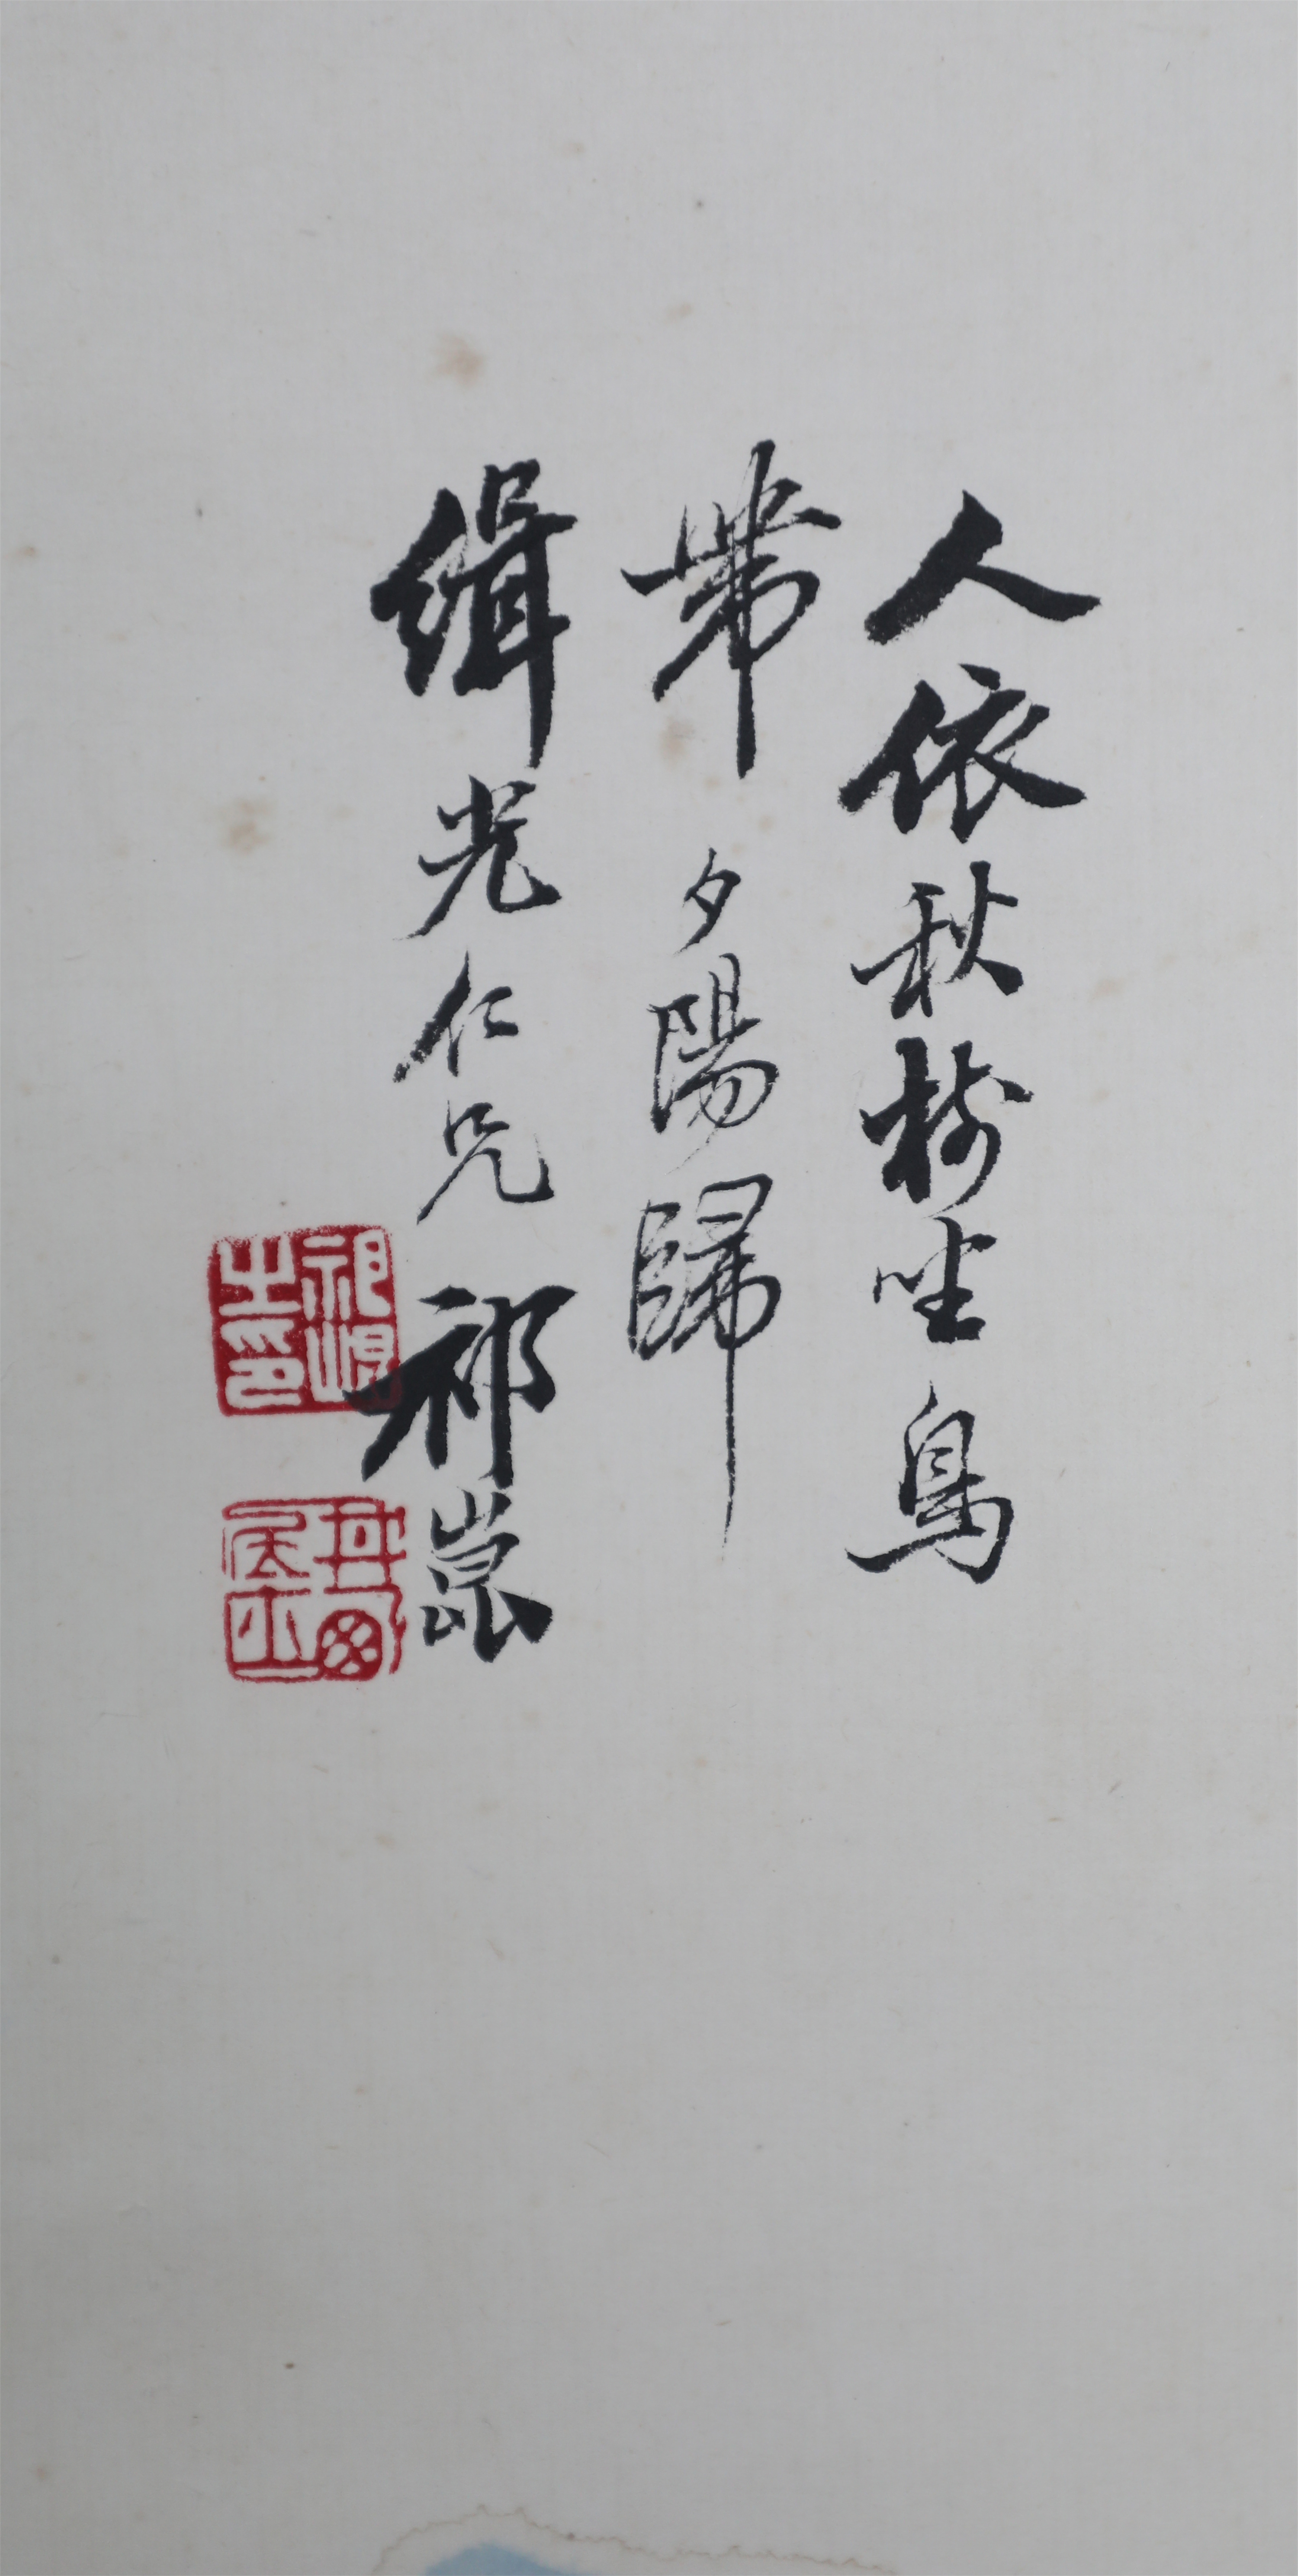 人依秋樹坐鳥
帶夕陽歸
緝光仁兄 祁崑
祁崑之印